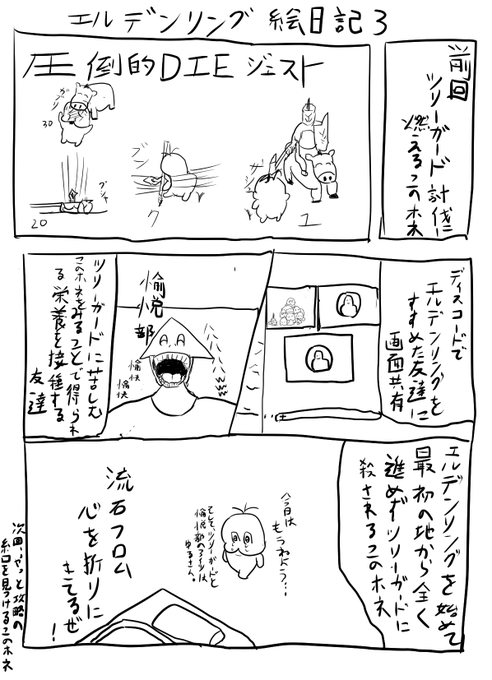 エルデンリング絵日記3
前回
ツリーガード討伐に
燃えるこのホネ
圧倒的DIEジェスト
ガブリ
30
グシャ
20
ブン
ク
ガッ
ユ
ディスコードで
エルデンリングを
すすめた友達に
画面共有
愉悦部
愉快
愉快
ツリーガードに苦しむ
このホネをみることで得られ
る栄養を接種する
友達
エルデンリングを始めて
最初の地から全く
進めずツリーガードに
殺されるこのホネ
今日は
もうねよう…
流石フロム
心を折りに
きてるぜ!
次回、やっと攻略の
糸口を見つけるこのホネ